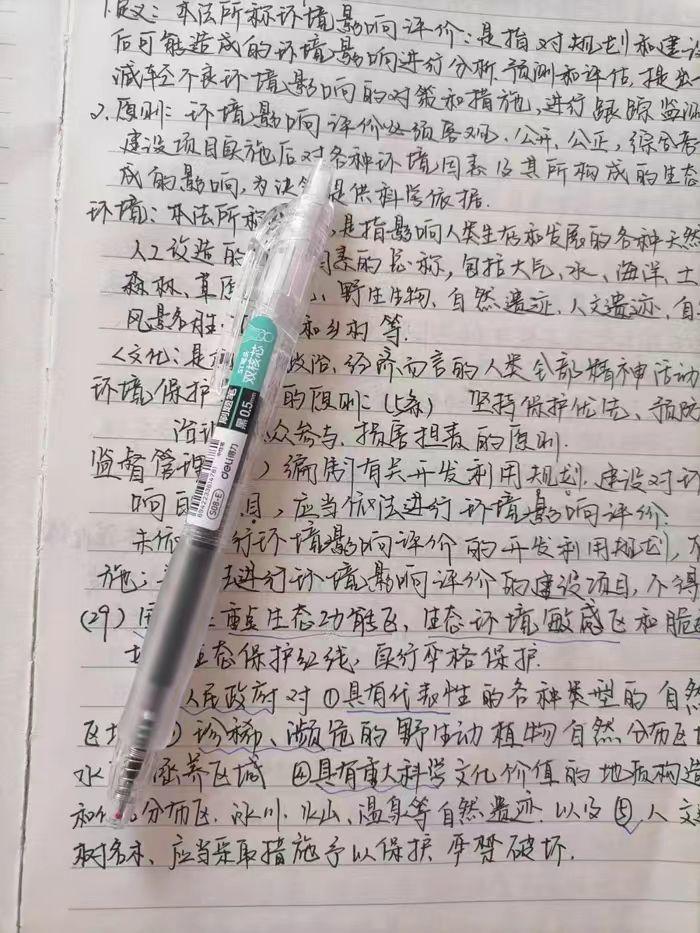 1.定义: 本法所称环境影响评价: 是指对规划和建设
后可能造成的环境影响进行分析.预测和评估, 提出
减轻不良环境影响的对策和措施, 进行跟踪监测
2.原则: 环境影响评价必须客观、公开、公正, 综合考
建设项目实施后对各种环境因素及其所构成的生态
成的影响, 为决 提供科学依据.
环境: 本法所称 是指影响人类生存和发展的各种天然
人工改造的 因素的总称, 包括大气、水、海洋、土
森林、草原 野生生物、自然遗迹、人文遗迹、自
风景名胜 和乡村等.
<文化: 是 政治、经济而言的人类全部精神活动
环境保护 的原则: (5条) 坚持保护优先、预防
治 众参与、损害担责的原则.
监督管理 ) 编制有关开发利用规划. 建设对环
响 目, 应当依法进行环境影响评价.
未依 行环境影响评价的开发利用规划, 不
施; 进行环境影响评价的建设项目, 不得
(29) 重点生态功能区、生态环境敏感区和脆
生态保护红线, 实行严格保护.
人民政府对 ①具有代表性的各种类型的自然
区域 珍稀、濒危的野生动植物自然分布区域
水 涵养区域 ④具有重大科学文化价值的地质构造
和 分布区. 冰川、火山、温泉等自然遗迹. 以及⑤人文
树名木、应当采取措施予以保护 严禁破坏.
ST笔头
双核芯
刷题笔
黑 0.5mm
deli得力
S08-E